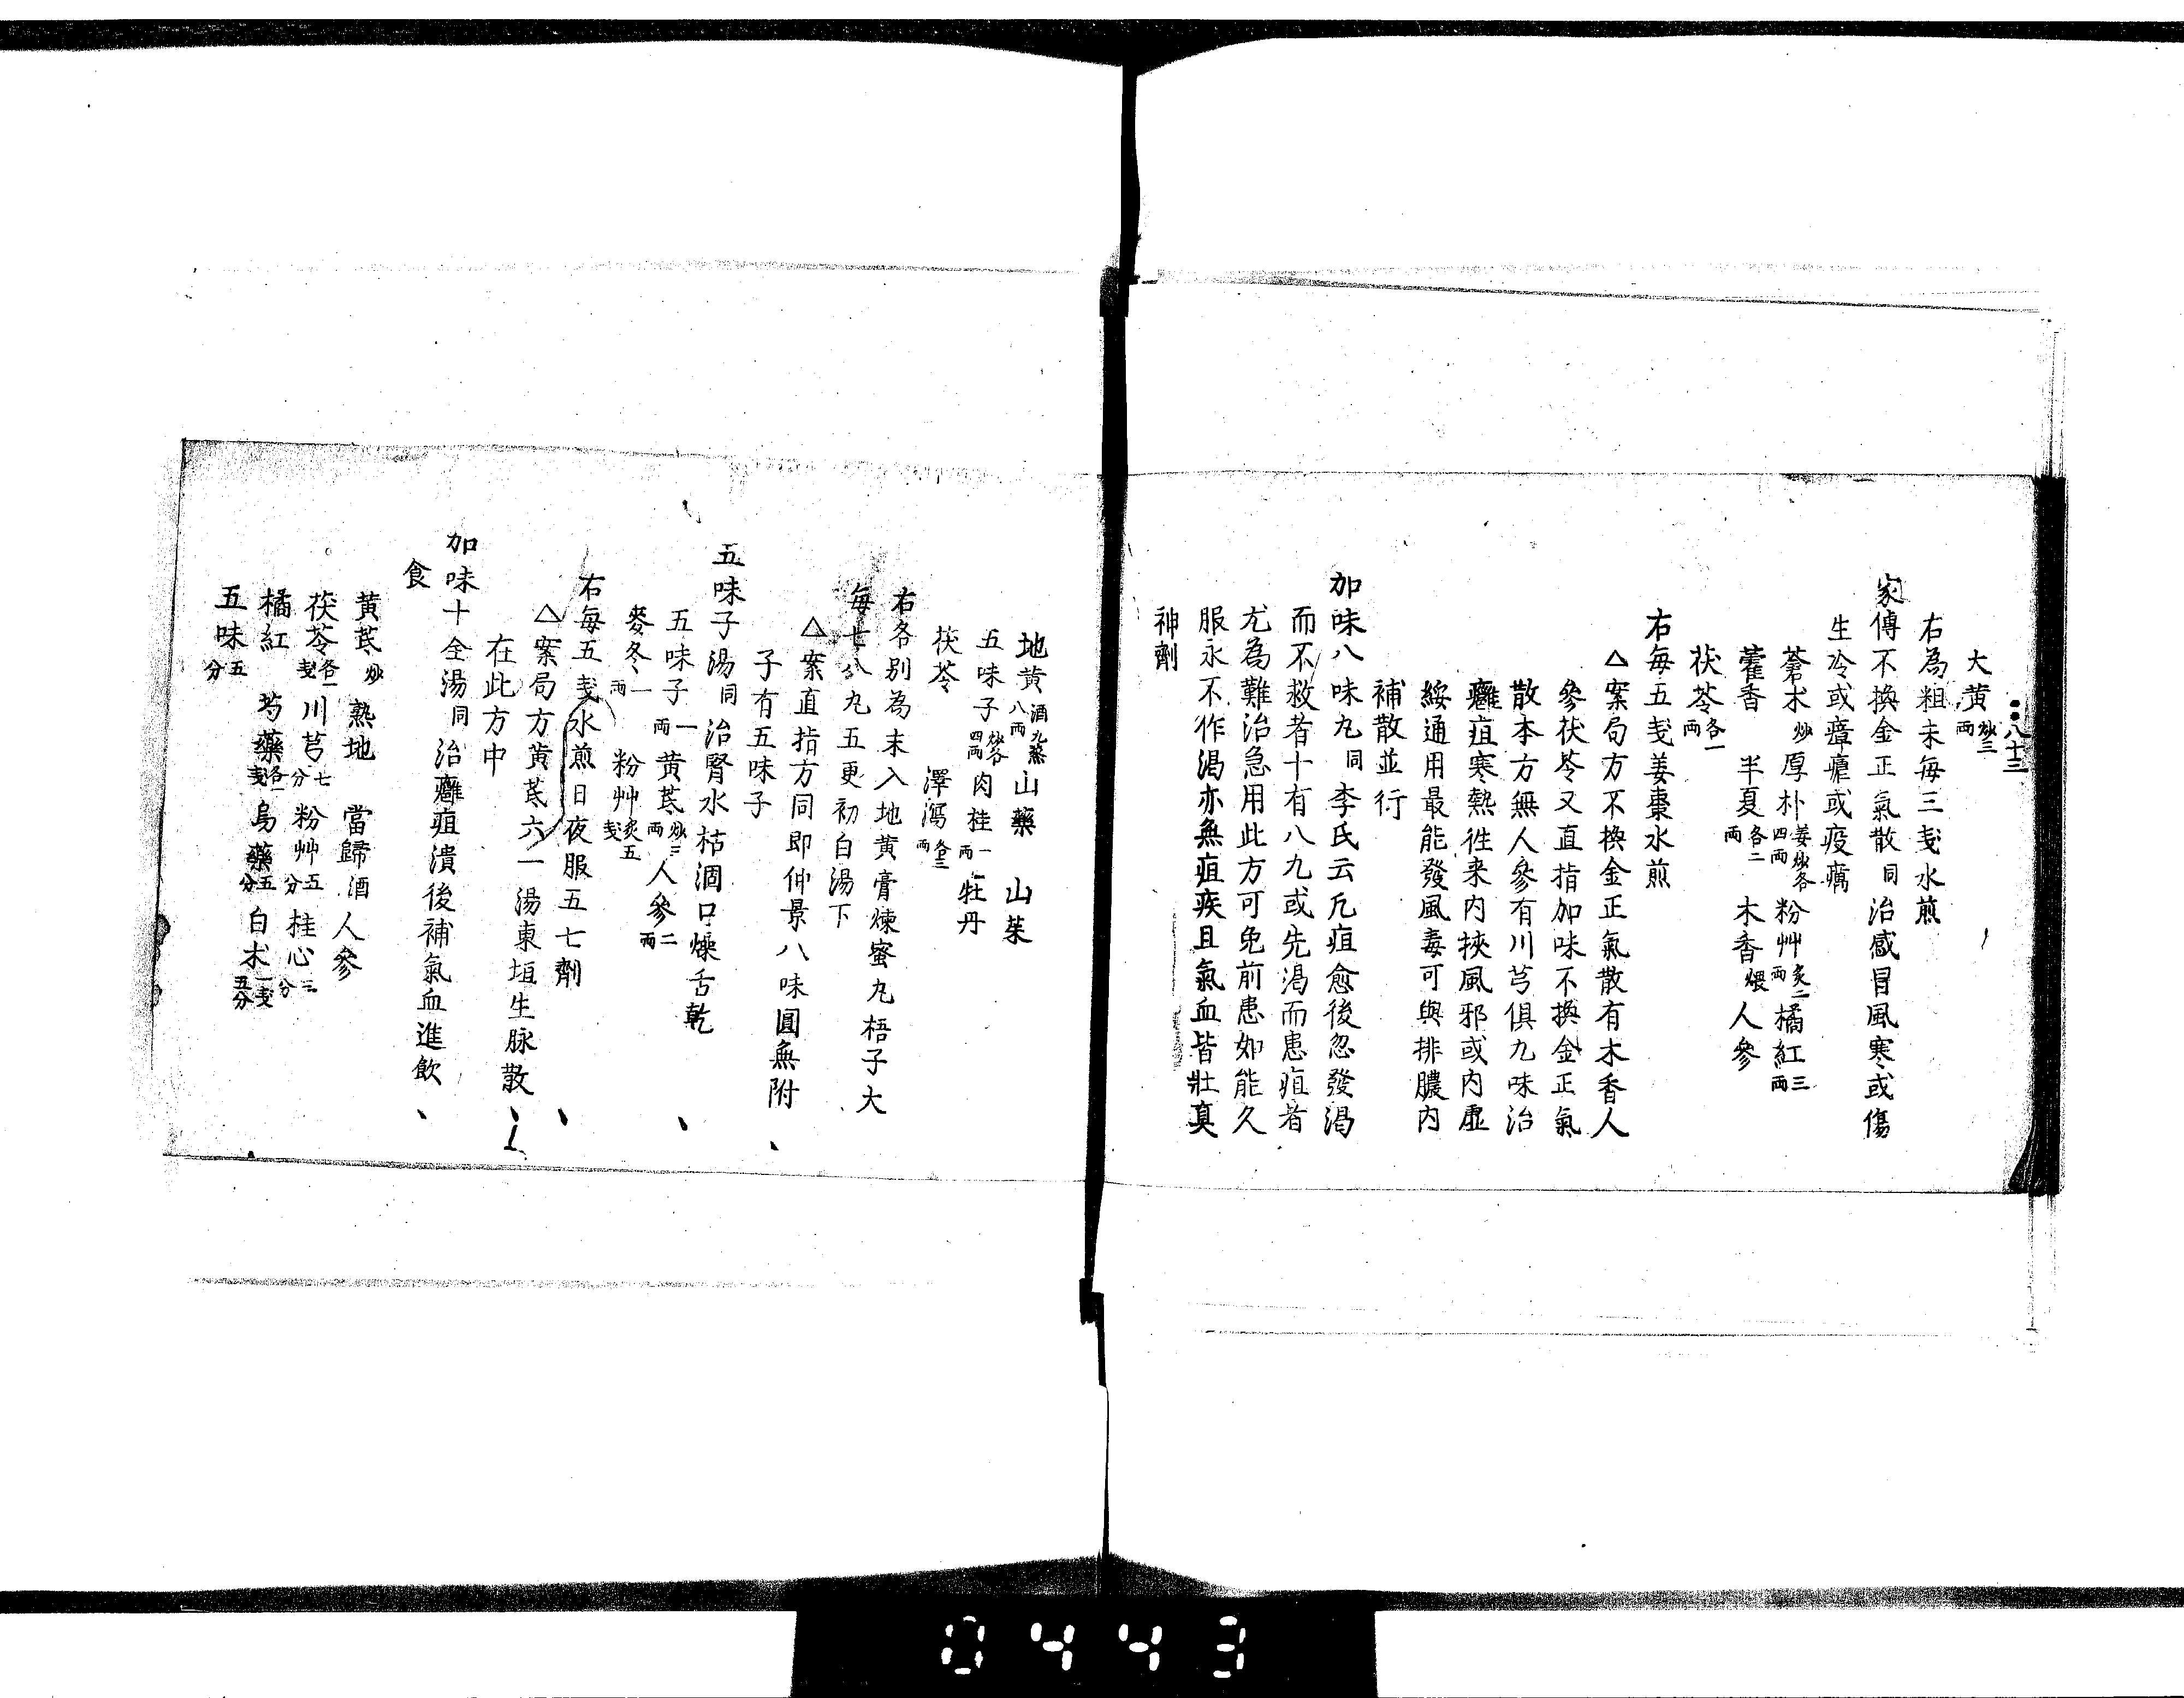 八十三
大黄炒三両
右為粗末每三戔水煎
家傳不換金正氣散同治感冒風寒或傷
生冷或瘴瘧或疫癘
蒼朮炒厚朴姜炒各四両粉艸炙二両橘紅三両
藿香 半夏各二両 木香煨人參
茯苓各一両
右每五戔姜棗水煎
△案局方不換金正氣散有木香人
參茯苓又直指加味不換金正氣
散本方無人參有川芎俱九味治
癰疽寒熱徃来内挾風邪或内虛
綏通用最能發風毒可與排膿内
補散並行
加味八味丸同李氏云凡疽愈後忽發渇
而不救者十有八九或先渇而患疽者
尤為難治急用此方可免前患如能久
服永不作渇亦無疽疾且氣血皆壯真
神劑
地黄酒九蒸八両山藥 山茱
五味子炒各四両肉桂一両牡丹
茯苓 澤瀉各三両
右各别為末入地黄膏煉蜜丸梧子大
每七八丸五更初白湯下
△案直指方同即仲景八味圓無附
子有五味子
五味子湯同治腎水枯涸口燥舌乾
五味子一両黄芪炒三両人參二両
麥冬一両 粉艸炙五戔
右每五戔水煎日夜服五七劑
△案局方黄芪六一湯東垣生脉散
在此方中
加味十全湯同治癰疽潰後補氣血進飲
食
黄芪炒 熟地 當歸酒人參
茯苓各一戔川芎七分粉艸五分桂心三分
橘紅 芍藥各一戔烏藥五分白朮一戔五分
五味五分
0443